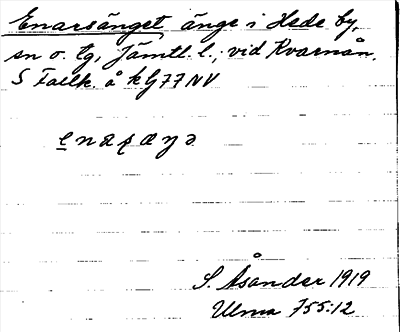 Enarsänget änge i Hede by,
sn o. tg, Jämtl. l.; vid Kvarnån,
S Fallk. å kG77NV
enaʂæŋə
S. Åsander 1919
Ulma 755:12